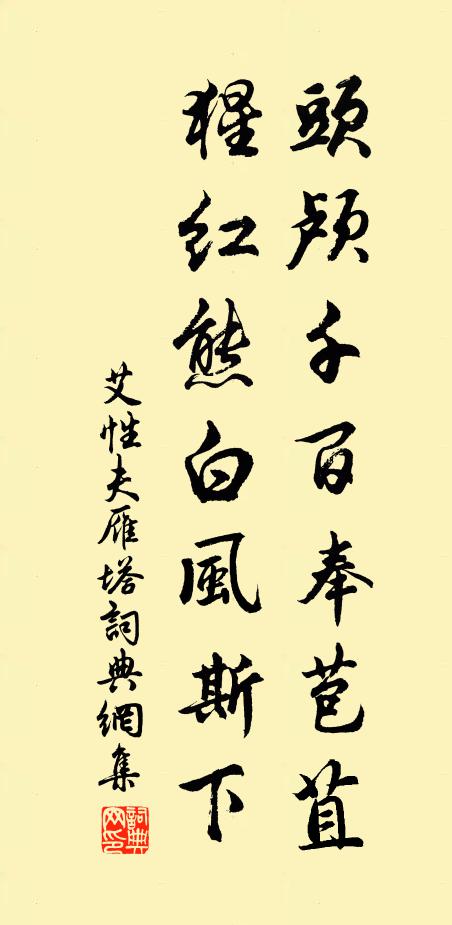 頭顱千百奉苞苴
猩紅熊白風斯下
艾性夫雁塔詞典網集
詞典網印